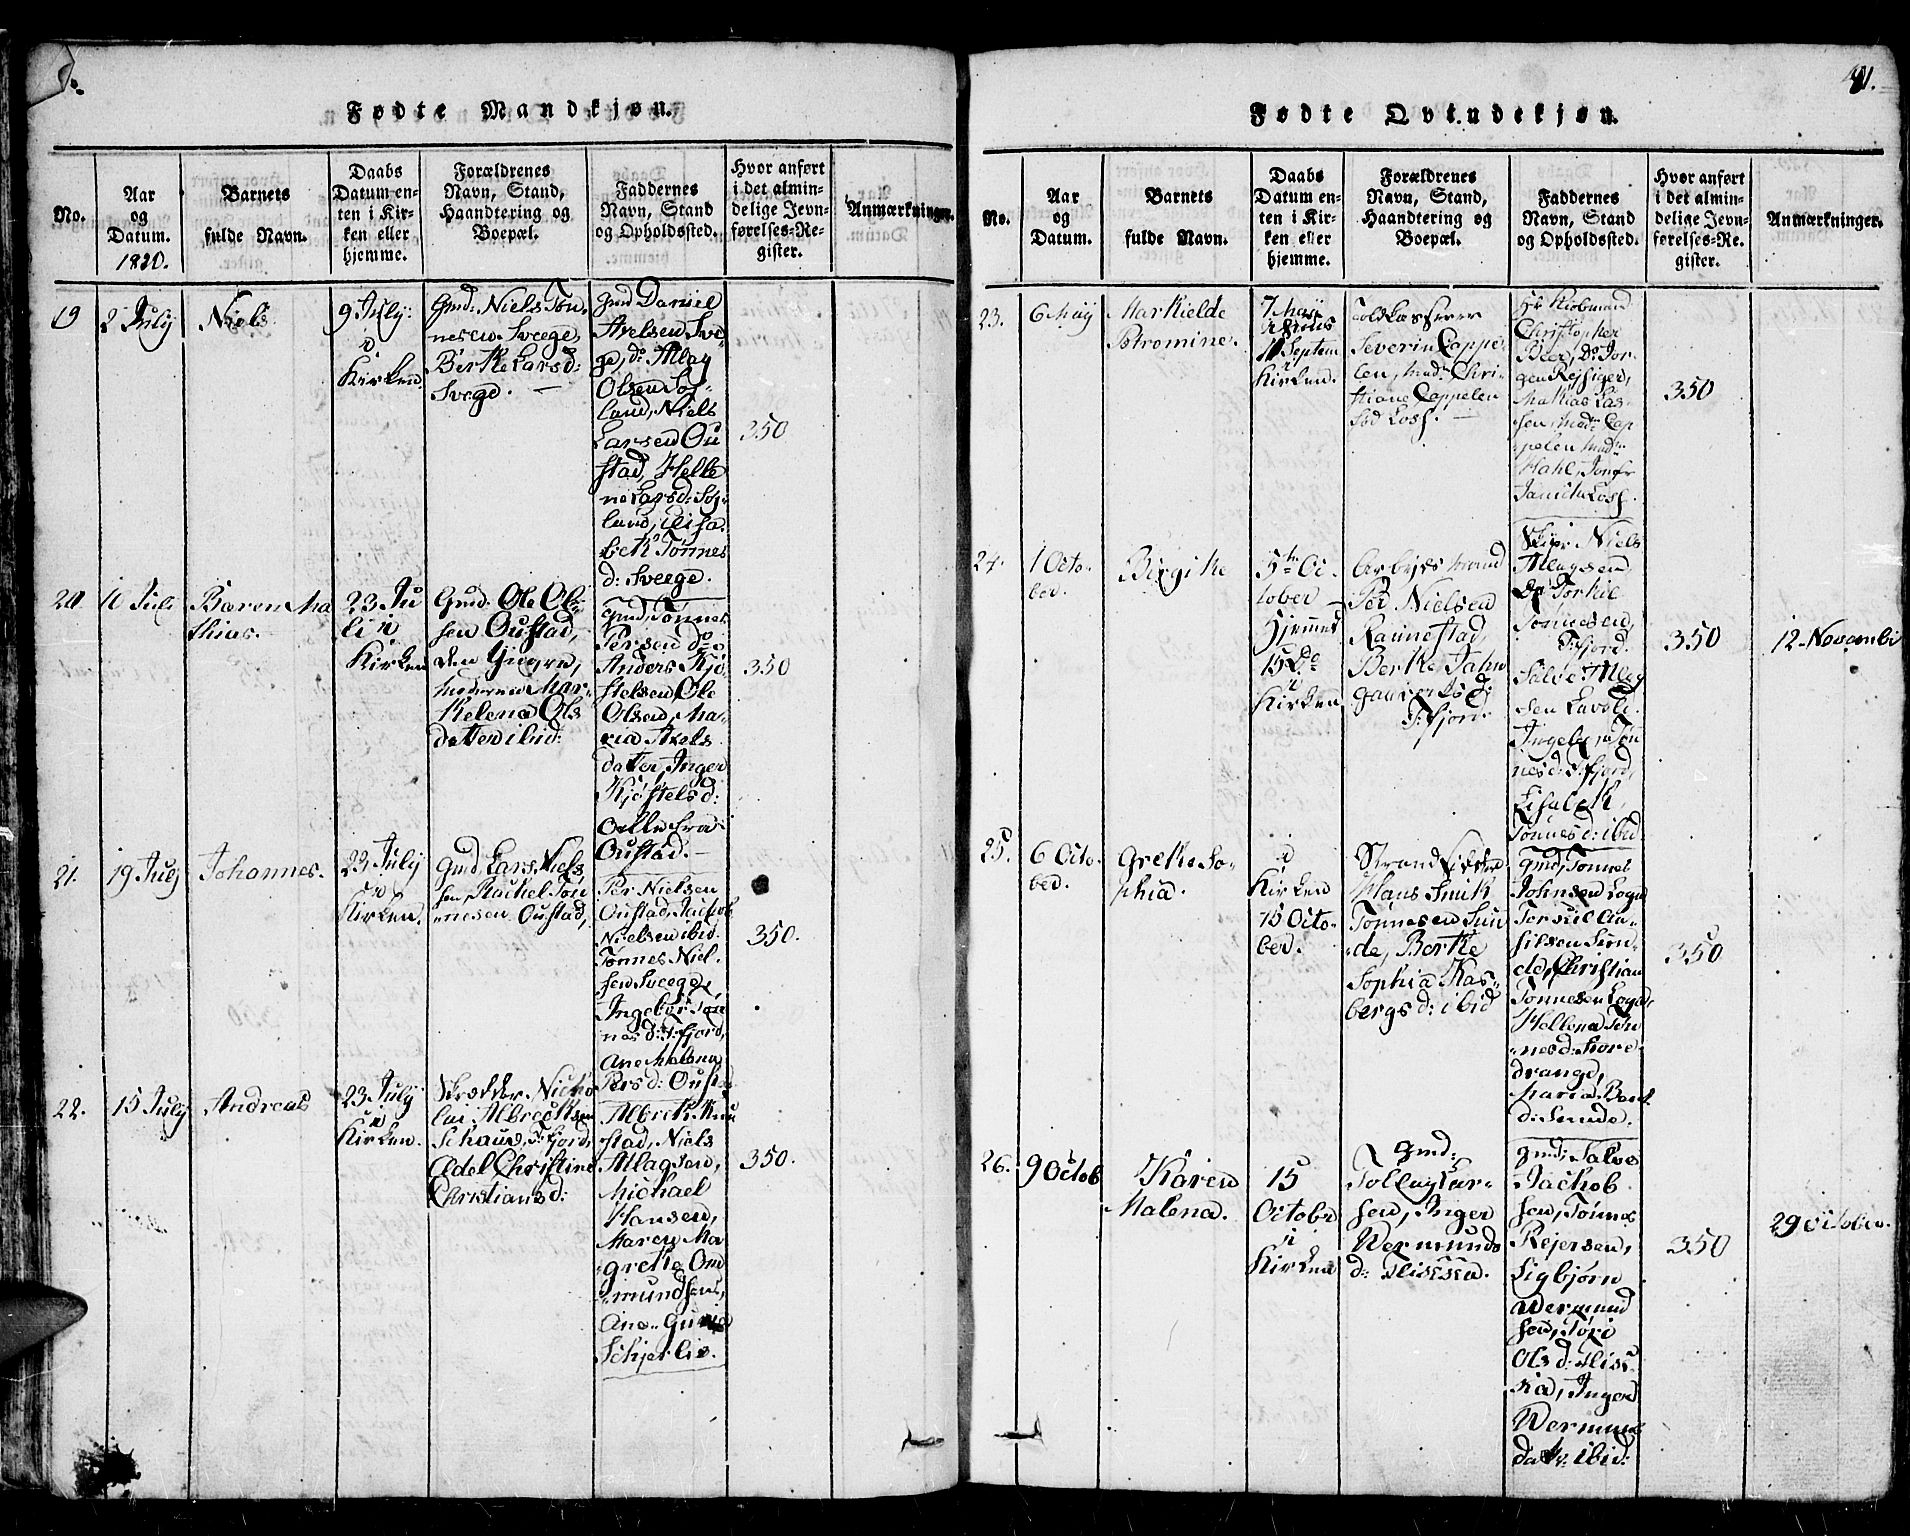 Fødte Mandkjøn.
No.
Aar
og
Datum.
1820.
Barnets
fulde Navn.
Daabs
Datum en-
ten i Kir-
ken eller
hjemme.
Forældrenes
Navn, Stand,
Haandtering og
Boepæl.
Faddernes
Navn, Stand
og Opholdssted.
Hvor anført
i det almin-
delige Jevn-
førelses-Re-
gister.
Anmærkninger.
19
2 July
Niels
9 July:
i
Kirken
Gmd: Niels Tøn
nesen Sveege,
Birthe Larsd:
Svege. —
Gmd Daniel
Axelsen Sve
ge, d: Atlag
Olsen Søg
land, Niels
Larsen Ou
stad, Helle
ne Larsd: Søg
land, Elisa
beth Tønnes
d: Sveege.
350
20
10 Juli
Baren Ma
thias.
23 Ju
li i
Kirken
Gmd: Ole Ol-
sen Oustad,
den Yngre,
moderen Mar-
thelena Ols
datter ibid:
Gmd, Tønnes
Persen d:o
Anders Kjø
stelsen, Ole
Olsen, Ma-
ria Axels
datter, Inger
Kjøstelsd:
alle fra
Oustad.
350
21.
19 July
Johannes.
23 July
i
Kirken.
Gmd Lars Niels
sen Rachel Tøn
nesen Oustad,
Per Nielsen
Oustad, Jachob
Nielsen ibid.
Tønnes Niel
sen Sveege,
Ingebor Tøn
nesd: F:fjord,
Ane Malena
Persd: Oustad
350.
22.
15 July
Andreas
23 July
i
Kirken.
Skrædder Nicho
lai Albrechtsen
Schaus, F:fjord,
Adel Christine
Christiansd:
Albreth Knu
stad, Niels
Atlagsen,
Michael
Hansen,
Maren Ma
grethe Om
mundsens,
Ane Guri
Schjerlie.
350.
41.
Fødte Qvindekjøn.
No.
Aar
og
Datum.
Barnets
fulde Navn.
Daabs
Datum en-
ten i Kir-
ken eller
hjemme.
Forældrenes
Navn, Stand,
Haandtering og
Boepæl.
Faddernes
Navn, Stand
og Opholdssted.
Hvor anført
i det almin-
delige Jevn-
førelses-Re-
gister.
Anmærkninger.
23.
6 May
Markielde
Petromine.
7 May
Septem
i
Kirken.
Toldkasserer
Severin Cappe-
len, mad: Chri-
stiane Cappelen
fød Loss. —
Hr Kiøbmand
Christopher
Beer, Do Jør
gen Rejsiger,
Mathias Las-
sen, mad: Cap
pelen, mad:
Hahl, Jomfr
Janicke Loss.
350
24.
1 Octo-
ber.
Birgithe
5te Oc-
tober
Hjemmet
15 Do
i
Kirken
Arbejdsmand
Per Nielsen
Raunestad,
Berthe Jahn
F:fjord
Skipr Niels
Atlagsen,
Do Torkil
Tønnesen,
F:fjord.
Salve Atlag
sen
Ingeborg Tøn
nesd: F:fjord,
Lisabeth
Tønnesd: ibid
350
12 Novembr
25.
6 Octo-
ber.
Grethe So-
phia.
i
Kirken
15 Octo-
ber.
Strandsidder
Hans Smith
Tønnesen Sun
de, Berthe
Sophia Kas-
bergsd: ibid
Gmd, Tønnes
Johnsen Logn
Torkil An-
filsen Sun-
de, Christian
Tønnesen Logn,
Hellena Tøn
nesd: Fore-
drange,
Maria Bent
d: Sunde.
350
26.
9 Octob
Karen
Malena.
15
October
i
Kirken
Gmd:
Tollag Lar-
sen, Inger
Wermunds
d: Flissen.
Gmd: Salve
Jachob
sen, Tønnes
Rejersen,
Sigbjørn
Wermund
sen, Tøri
Olsd:
Inger
Wermun
datr. ibid:
350
29 October.